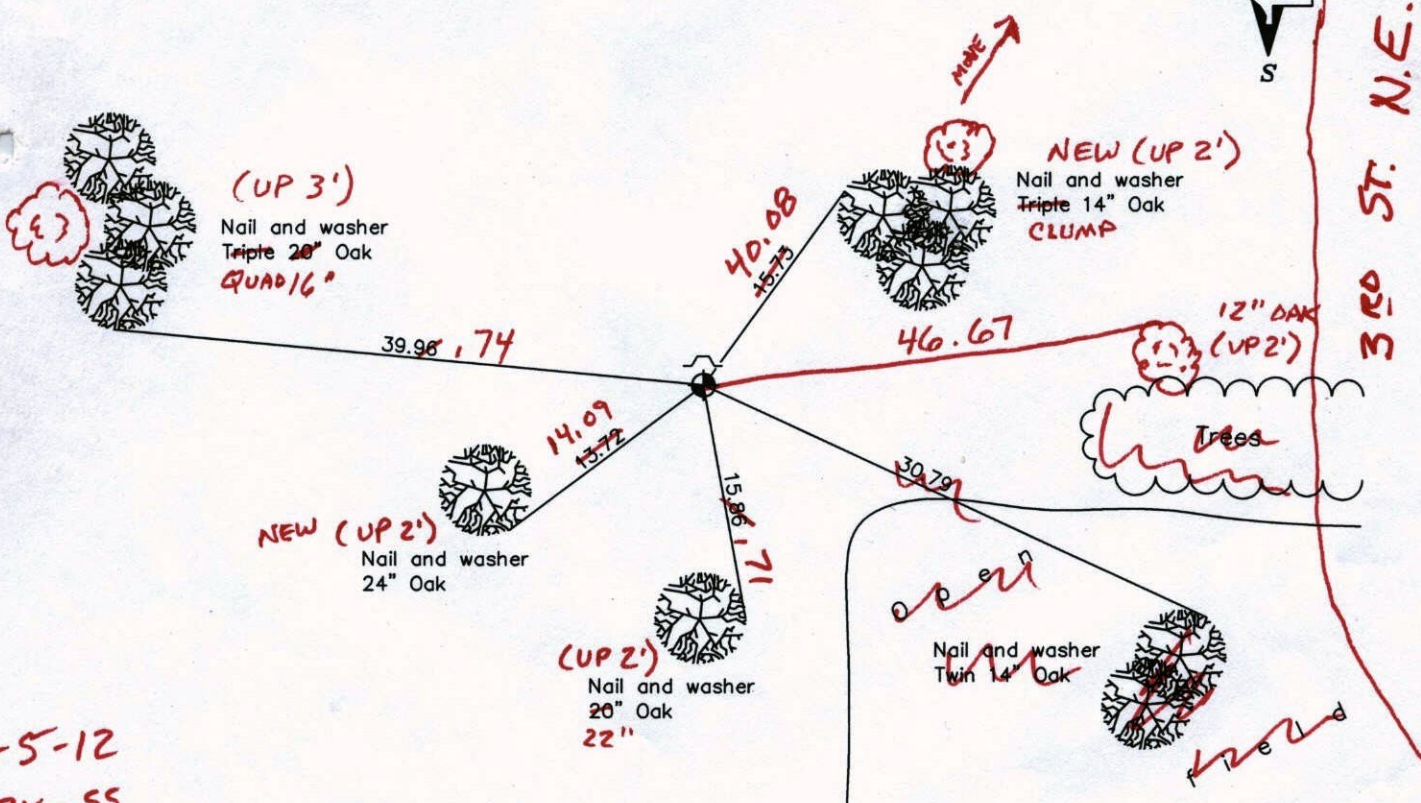 S
3RD ST. N.E.
MOVE
(UP 3')
Nail and washer
Triple 20" Oak
QUAD 16"
NEW (UP 2')
Nail and washer
Triple 14" Oak
CLUMP
40.08
15.73
39.96 .74
46.67
12" OAK
(UP 2')
Trees
14.09
13.72
15.86 .71
30.79
NEW (UP 2')
Nail and washer
24" Oak
open
(UP 2')
Nail and washer
20" Oak
22"
Nail and washer
Twin 14" Oak
field
-5-12
SS